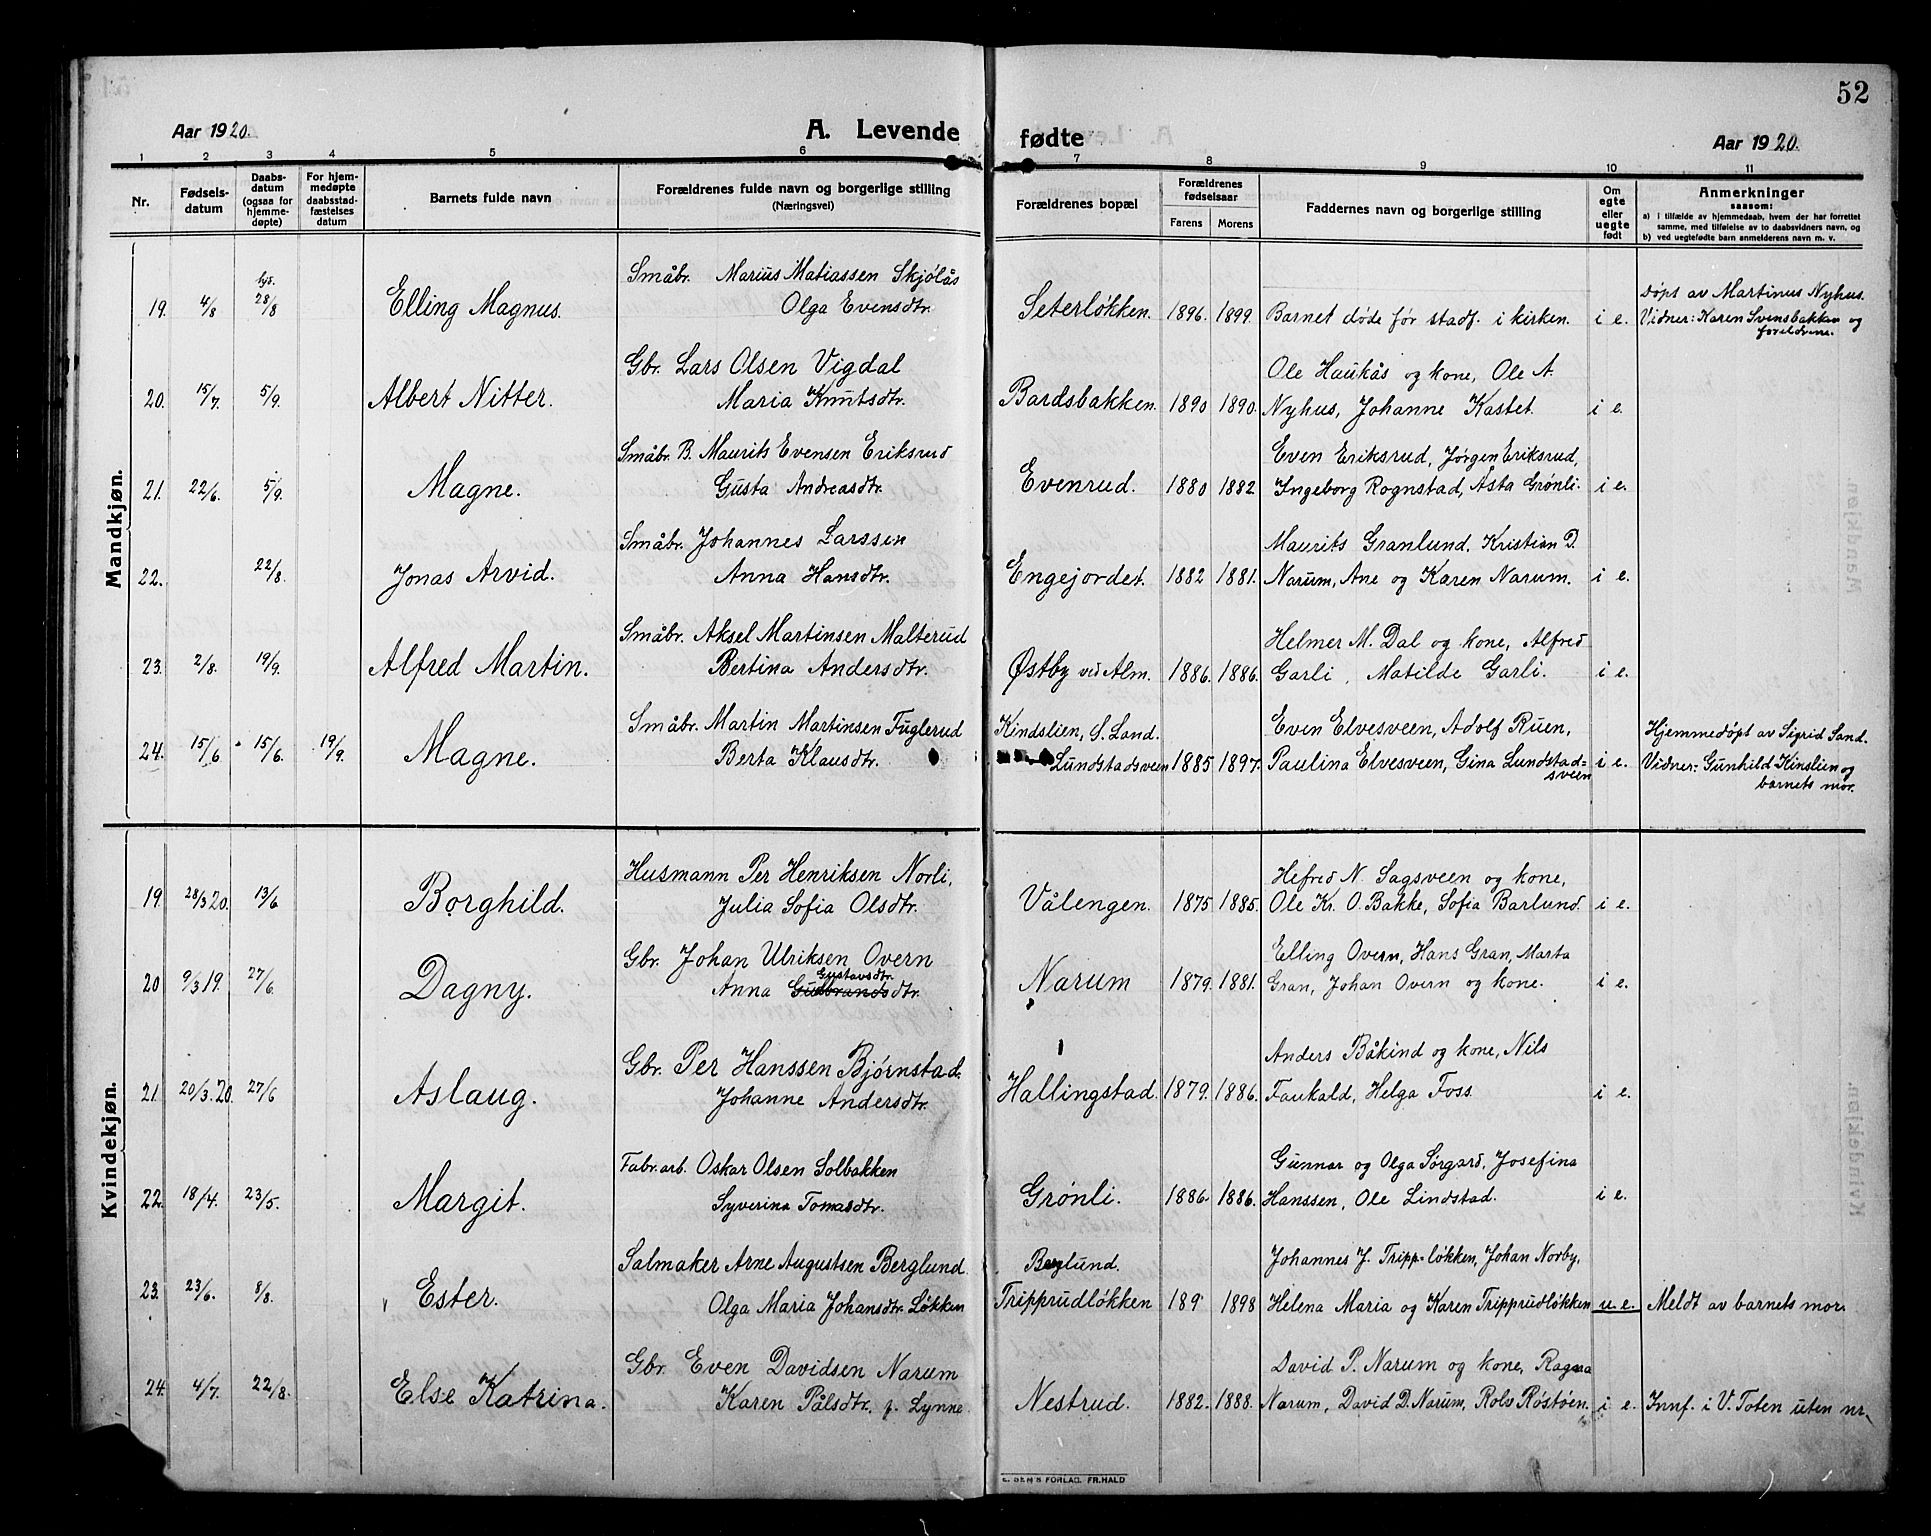 52
Aar 1920.
A. Levende
fødte
Aar 1920.
1 2 3 4 5 6 7 8 9 10 11
Nr.
Fødsels-
datum
Daabs-
datum
(ogsaa for
hjemme-
døpte)
For hjem-
medøpte
daabsstad-
fæstelses
datum
Barnets fulde navn
Forældrenes fulde navn og borgerlige stilling
(Næringsvei)
Forældrenes bopæl
Forældrenes
fødselsaar
Farens Morens
Faddernes navn og borgerlige stilling
Om
egte
eller
uegte
født
Anmerkninger
saasom:
a) i tilfælde av hjemmedaab, hvem der har forrettet
samme, med tilføielse av to daabsvidners navn, og
b) ved uegtefødte barn anmelderens navn m. v.
Mandkjøn.
19. 4/8 28/8 Elling Magnus.
Småbr. Marius Matiassen Skjølås
Olga Evensdtr.
Seterløkken. 1896. 1899. Barnet døde før stadf. i kirken. i e.
Døpt av Martinus Nyhus.
Vidner: Karen Svensbakken og
foreldrene.
20. 15/7. 5/9. Albert Nitter.
Gbr. Lars Olsen Vigdal
Maria Knutsdtr.
Bardsbakken. 1890 1890.
Ole Haukås og kone, Ole A.
Nyhus, Johanne Kastet. i e.
21. 22/6. 5/9. Magne.
Småbr. B. Maurits Evensen Eriksrud
Gusta Andreasdtr.
Evenrud. 1880 1882
Even Eriksrud, Jørgen Eriksrud,
Ingeborg Rognstad, Asta Grønli. i e.
22. 22/8. Jonas Arvid.
Småbr. Johannes Larssen
Anna Hansdtr.
Engejordet. 1882 1881.
Maurits Granlund, Kristian D.
Narum, Ane og Karen Narum. i e.
23. 2/8. 19/9. Alfred Martin.
Småbr. Aksel Martinsen Malterud
Bertina Andersdtr.
Østby ved Alm. 1886. 1886.
Helmer M. Dal og kone, Alfred
Garli, Matilde Garli. i e.
24. 15/6 15/6. 19/9. Magne.
Småbr. Martin Martinsen Fuglerud
Berta Klausdtr.
Kindslien, S. Land.
Lundstadsveen 1885 1897.
Even Elvesveen, Adolf Ruen,
Paulina Elvesveen, Gina Lundstad=
sveen i e.
Hjemmedøpt av Sigrid Sand.
Vidner: Gunhild Kinslien og
barnets mor.
Kvindekjøn.
19. 28/3 20. 13/6 Borghild.
Husmann Per Henriksen Norli,
Julia Sofia Olsdtr.
Vålengen. 1875 1885.
Hefred N. Sagsveen og kone,
Ole Kr. O. Bakke, Sofia Barlund i e.
20 9/3 19. 27/6. Dagny.
Gbr. Johan Ulriksen Overn
Gustavsdtr.
Anna Gudbrandsdtr.
Narum 1879. 1881.
Elling Overn, Hans Gran, Marta
Gran, Johan Overn og kone. i e.
21. 20/3. 20. 27/6 Aslaug.
Gbr. Per Hanssen Bjørnstad.
Johanne Andersdtr.
Hallingstad. 1879. 1886.
Anders Båkind og kone, Nils
Faukald, Helga Foss. i e.
22. 18/4. 23/5. Margit.
Fabr.arb. Oskar Olsen Solbakken
Syverina Tomasdtr.
Grønli. 1886. 1886.
Gunnar og Olga Sørgard, Josefina
Hanssen, Ole Lindstad. i e.
23. 23/6. 8/8. Ester.
Salmaker Arne Augustsen Berglund.
Olga Maria Johansdtr. Løkken
Berglund.
Tripprudløkken 189 1898
Johannes J. Tripp-løkken, Johan Norby,
Helena Maria og Karen Tripprudløkken u. e. Meldt av barnets mor.
24. 4/7. 22/8. Else Katrina.
Gbr. Even Davidsen Narum
Karen Pålsdtr. f. Lynne
Nestrud. 1882. 1888.
David P. Narum og kone, Ragna
Narum, David D. Narum, Rolv Røstøen. i e. Innf. i V. Toten uten nr.
FORLAG. FR. HALD